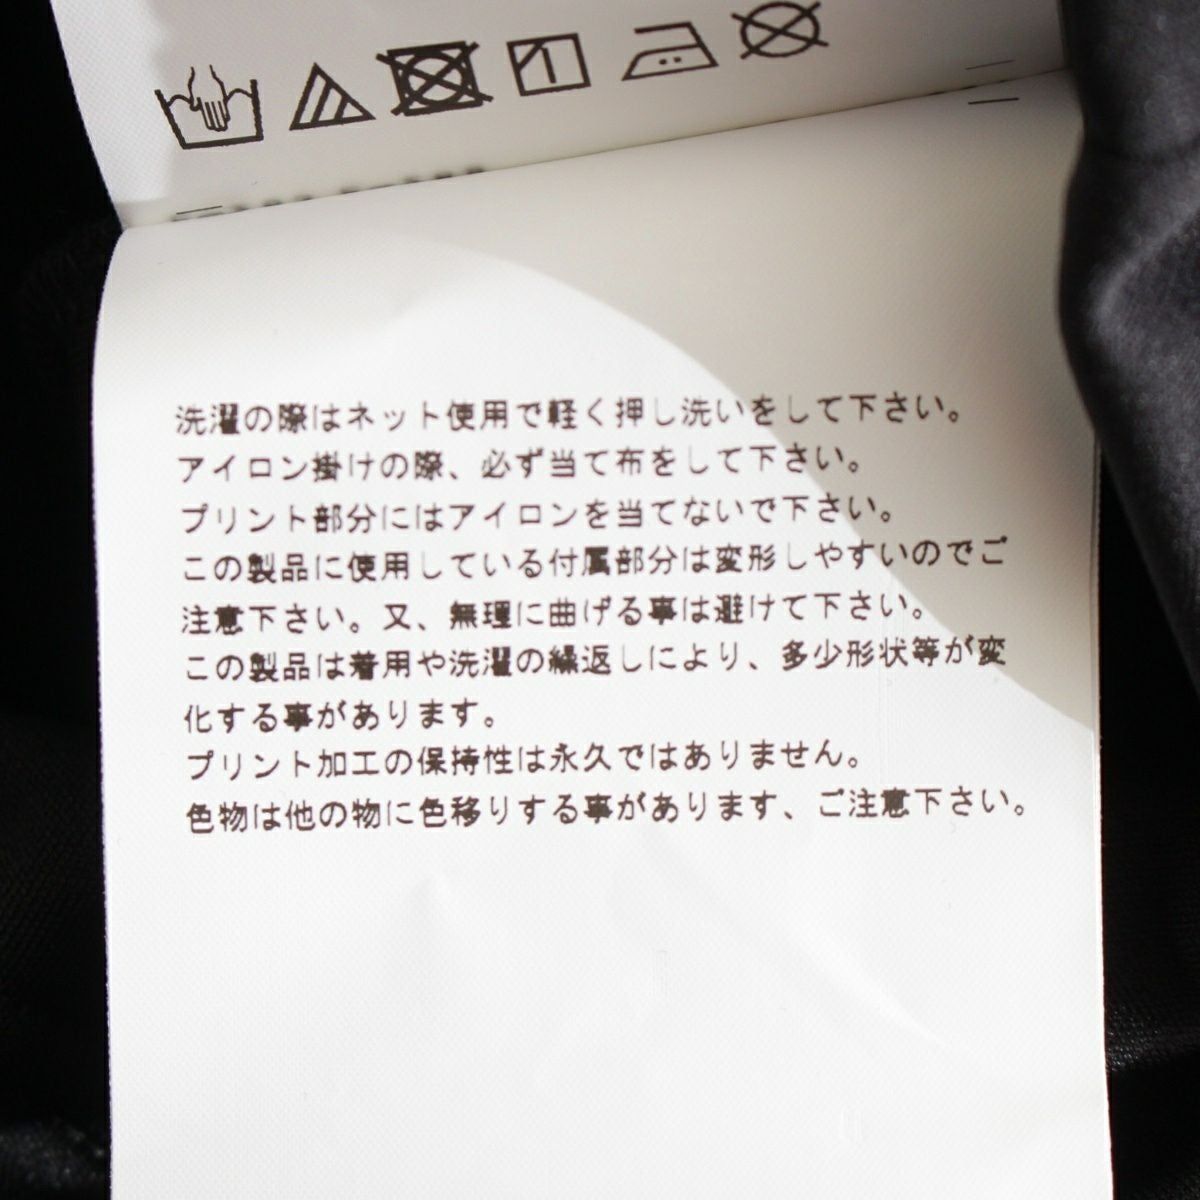 洗濯の際はネット使用で軽く押し洗いをして下さい。
アイロン掛けの際、必ず当て布をして下さい。
プリント部分にはアイロンを当てないで下さい。
この製品に使用している付属部分は変形しやすいのでご
注意下さい。又、無理に曲げる事は避けて下さい。
この製品は着用や洗濯の繰返しにより、多少形状等が変
化する事があります。
プリント加工の保持性は永久ではありません。
色物は他の物に色移りする事があります、ご注意下さい。